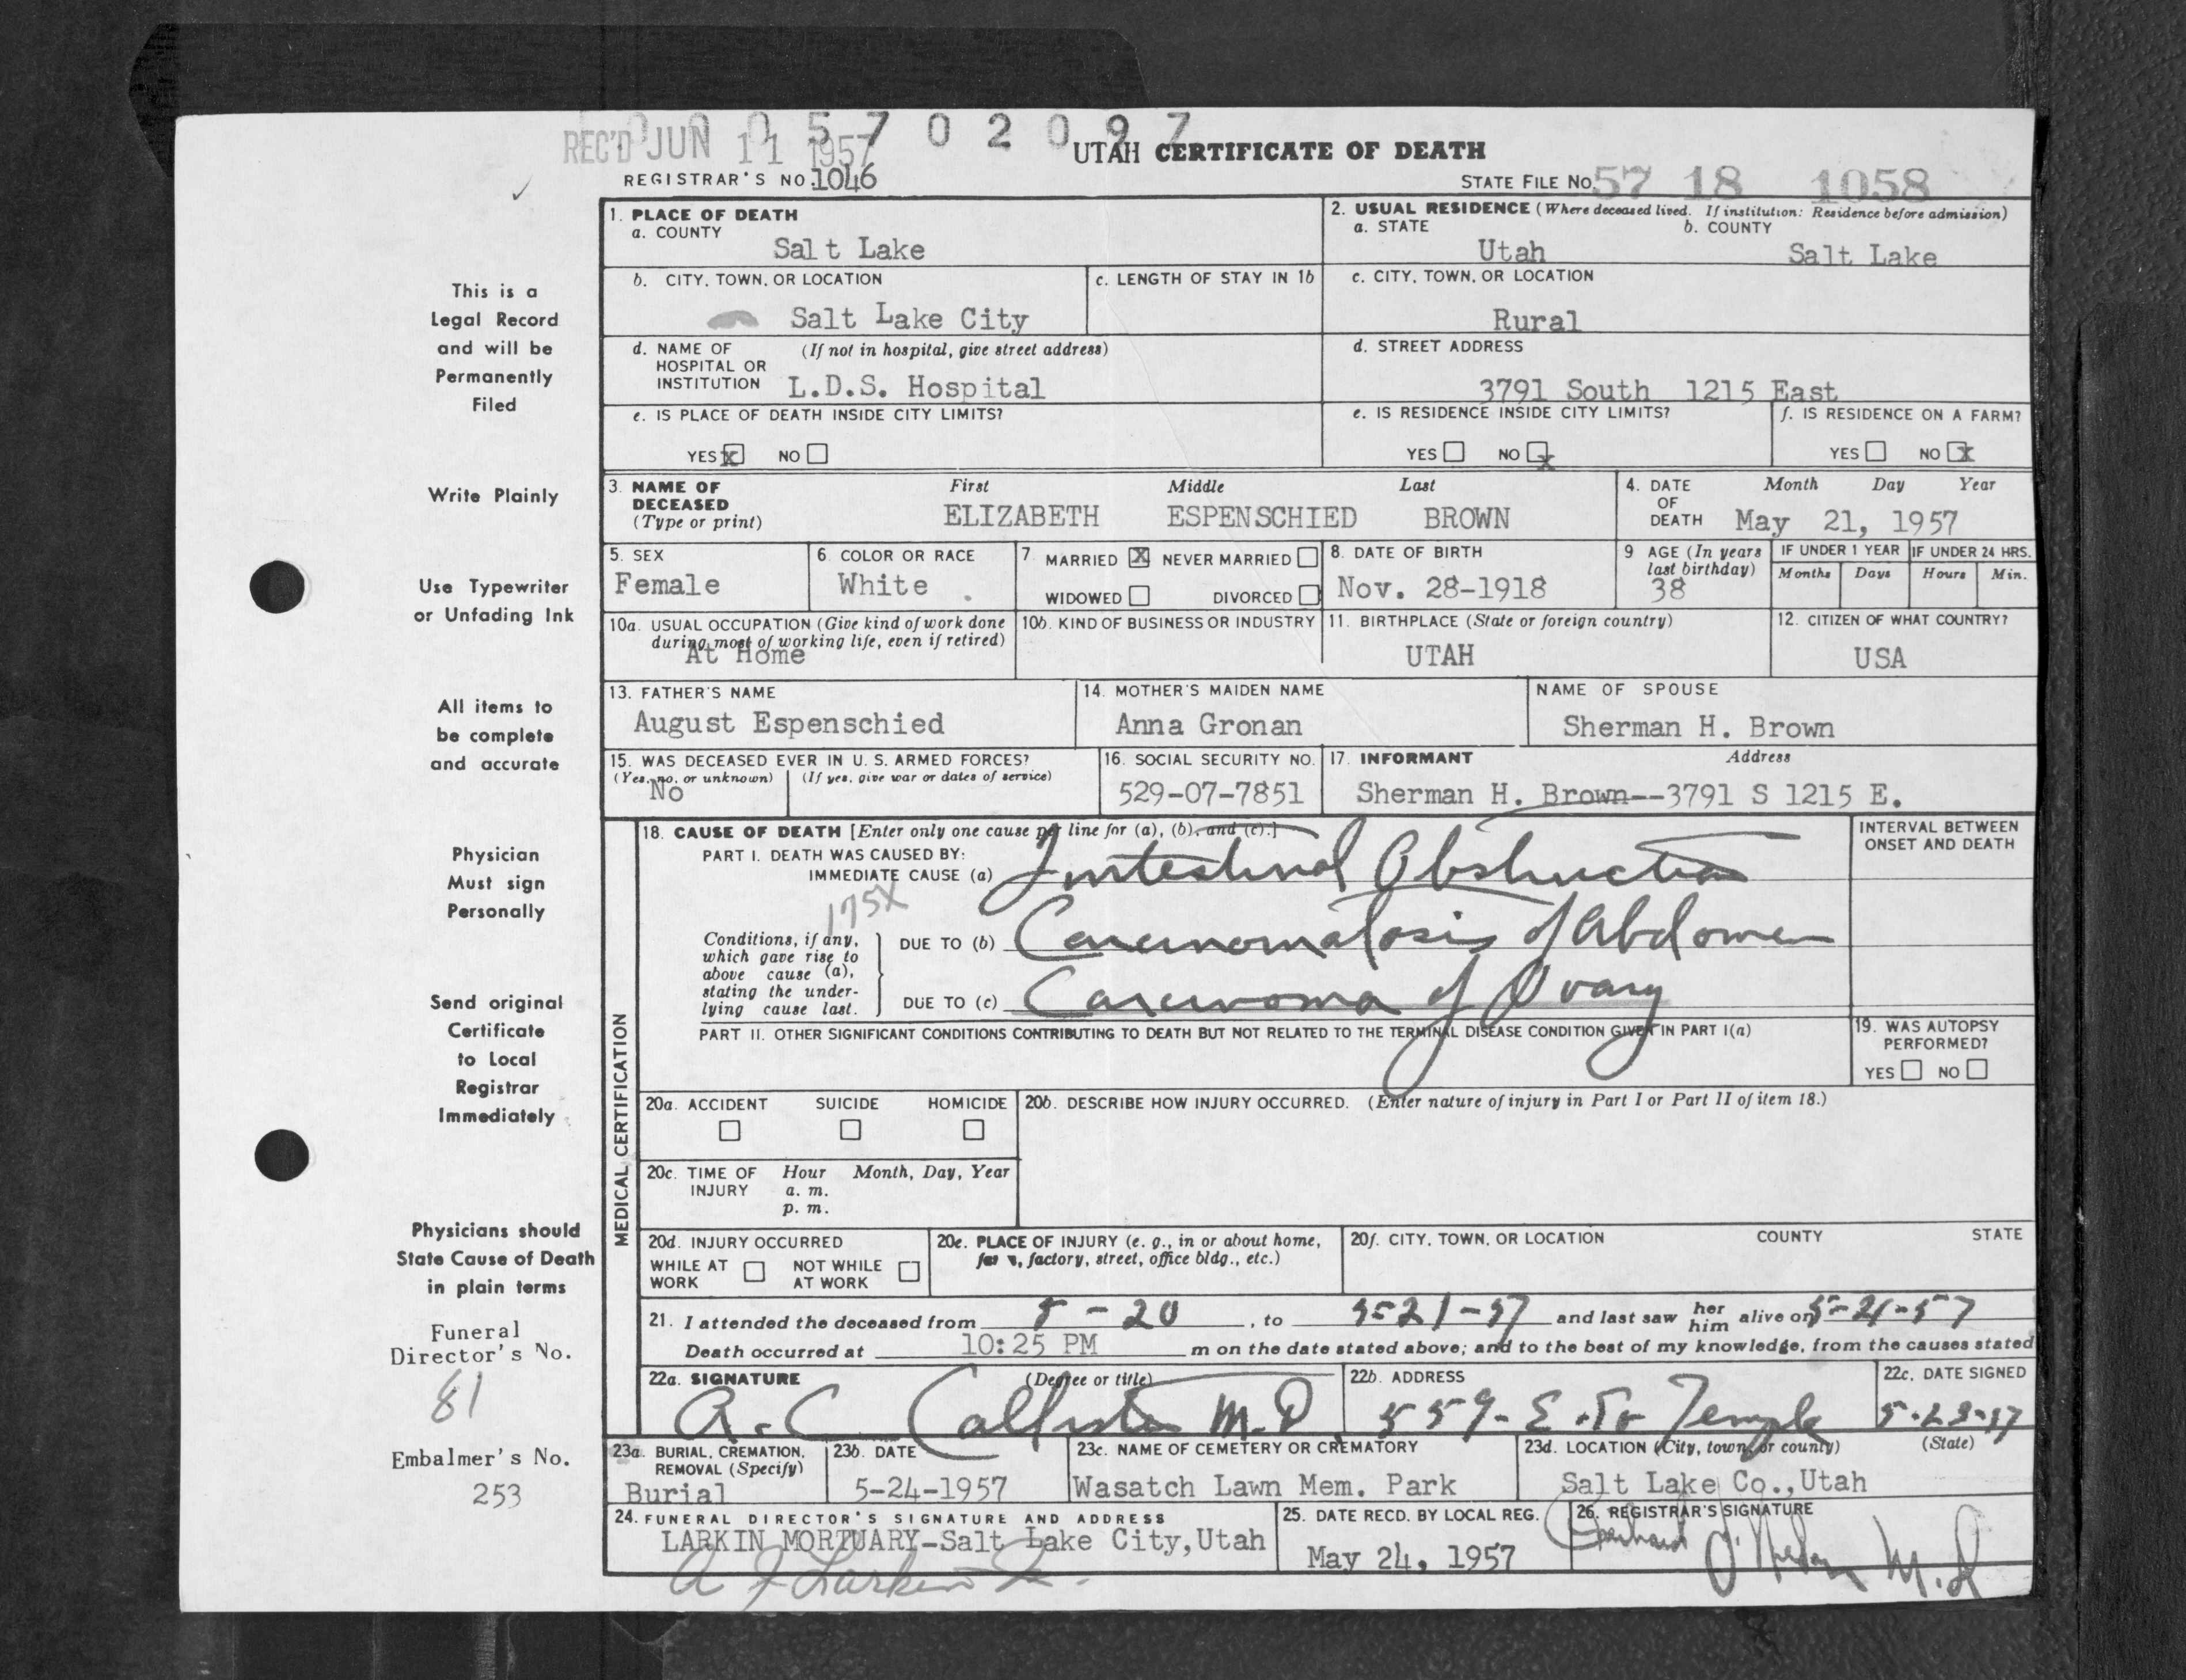 0 0 0 5 7 0 2 0 9 7
REC'D JUN 11 1957
UTAH CERTIFICATE OF DEATH
REGISTRAR'S NO. 1046
STATE FILE NO. 57 18 1058
1. PLACE OF DEATH
a. COUNTY
Salt Lake
2. USUAL RESIDENCE (Where deceased lived. If institution: Residence before admission)
a. STATE
Utah
b. COUNTY
Salt Lake
b. CITY, TOWN, OR LOCATION
Salt Lake City
c. LENGTH OF STAY IN 1b
c. CITY, TOWN, OR LOCATION
Rural
d. NAME OF HOSPITAL OR INSTITUTION
(If not in hospital, give street address)
L.D.S. Hospital
d. STREET ADDRESS
3791 South 1215 East
e. IS PLACE OF DEATH INSIDE CITY LIMITS?
YES x NO
e. IS RESIDENCE INSIDE CITY LIMITS?
YES NO x
f. IS RESIDENCE ON A FARM?
YES NO x
3. NAME OF DECEASED
(Type or print)
First Middle Last
ELIZABETH ESPENSCHIED BROWN
4. DATE OF DEATH
Month Day Year
May 21, 1957
5. SEX
Female
6. COLOR OR RACE
White .
7. MARRIED X NEVER MARRIED
WIDOWED DIVORCED
8. DATE OF BIRTH
Nov. 28-1918
9 AGE (In years last birthday)
38
IF UNDER 1 YEAR
Months Days
IF UNDER 24 HRS.
Hours Min.
10a. USUAL OCCUPATION (Give kind of work done
during most of working life, even if retired)
At Home
10b. KIND OF BUSINESS OR INDUSTRY
11. BIRTHPLACE (State or foreign country)
UTAH
12. CITIZEN OF WHAT COUNTRY?
USA
13. FATHER'S NAME
August Espenschied
14. MOTHER'S MAIDEN NAME
Anna Gronan
NAME OF SPOUSE
Sherman H. Brown
15. WAS DECEASED EVER IN U. S. ARMED FORCES?
(Yes, no, or unknown) (If yes, give war or dates of service)
No
16. SOCIAL SECURITY NO.
529-07-7851
17. INFORMANT Address
Sherman H. Brown--3791 S 1215 E.
MEDICAL CERTIFICATION
18. CAUSE OF DEATH [Enter only one cause per line for (a), (b), and (c).]
PART I. DEATH WAS CAUSED BY:
IMMEDIATE CAUSE (a) Intestinal Obstruction
175X
Conditions, if any,
which gave rise to
above cause (a),
stating the under-
lying cause last.
DUE TO (b) Carcinomatosis of Abdomen
DUE TO (c) Carcinoma of Ovary
INTERVAL BETWEEN
ONSET AND DEATH
PART II. OTHER SIGNIFICANT CONDITIONS CONTRIBUTING TO DEATH BUT NOT RELATED TO THE TERMINAL DISEASE CONDITION GIVEN IN PART I(a)
19. WAS AUTOPSY
PERFORMED?
YES NO
20a. ACCIDENT SUICIDE HOMICIDE
20b. DESCRIBE HOW INJURY OCCURRED. (Enter nature of injury in Part I or Part II of item 18.)
20c. TIME OF INJURY
Hour Month, Day, Year
a. m.
p. m.
20d. INJURY OCCURRED
WHILE AT WORK
NOT WHILE AT WORK
20e. PLACE OF INJURY (e. g., in or about home,
farm, factory, street, office bldg., etc.)
20f. CITY, TOWN, OR LOCATION COUNTY STATE
21. I attended the deceased from 5-20, to 5-21-57 and last saw her him alive on 5-21-57
Death occurred at 10:25 PM m on the date stated above; and to the best of my knowledge, from the causes stated
22a. SIGNATURE (Degree or title)
A. C. Callister M.D
22b. ADDRESS
559- E. So Temple
22c. DATE SIGNED
5-23-57
23a. BURIAL, CREMATION,
REMOVAL (Specify)
Burial
23b. DATE
5-24-1957
23c. NAME OF CEMETERY OR CREMATORY
Wasatch Lawn Mem. Park
23d. LOCATION (City, town, or county) (State)
Salt Lake Co., Utah
24. FUNERAL DIRECTOR'S SIGNATURE AND ADDRESS
LARKIN MORTUARY-Salt Lake City, Utah
A J Larkin Jr.
25. DATE RECD. BY LOCAL REG.
May 24, 1957
26. REGISTRAR'S SIGNATURE
M.D.
This is a
Legal Record
and will be
Permanently
Filed
Write Plainly
Use Typewriter
or Unfading Ink
All items to
be complete
and accurate
Physician
Must sign
Personally
Send original
Certificate
to Local
Registrar
Immediately
Physicians should
State Cause of Death
in plain terms
Funeral
Director's No.
81
Embalmer's No.
253